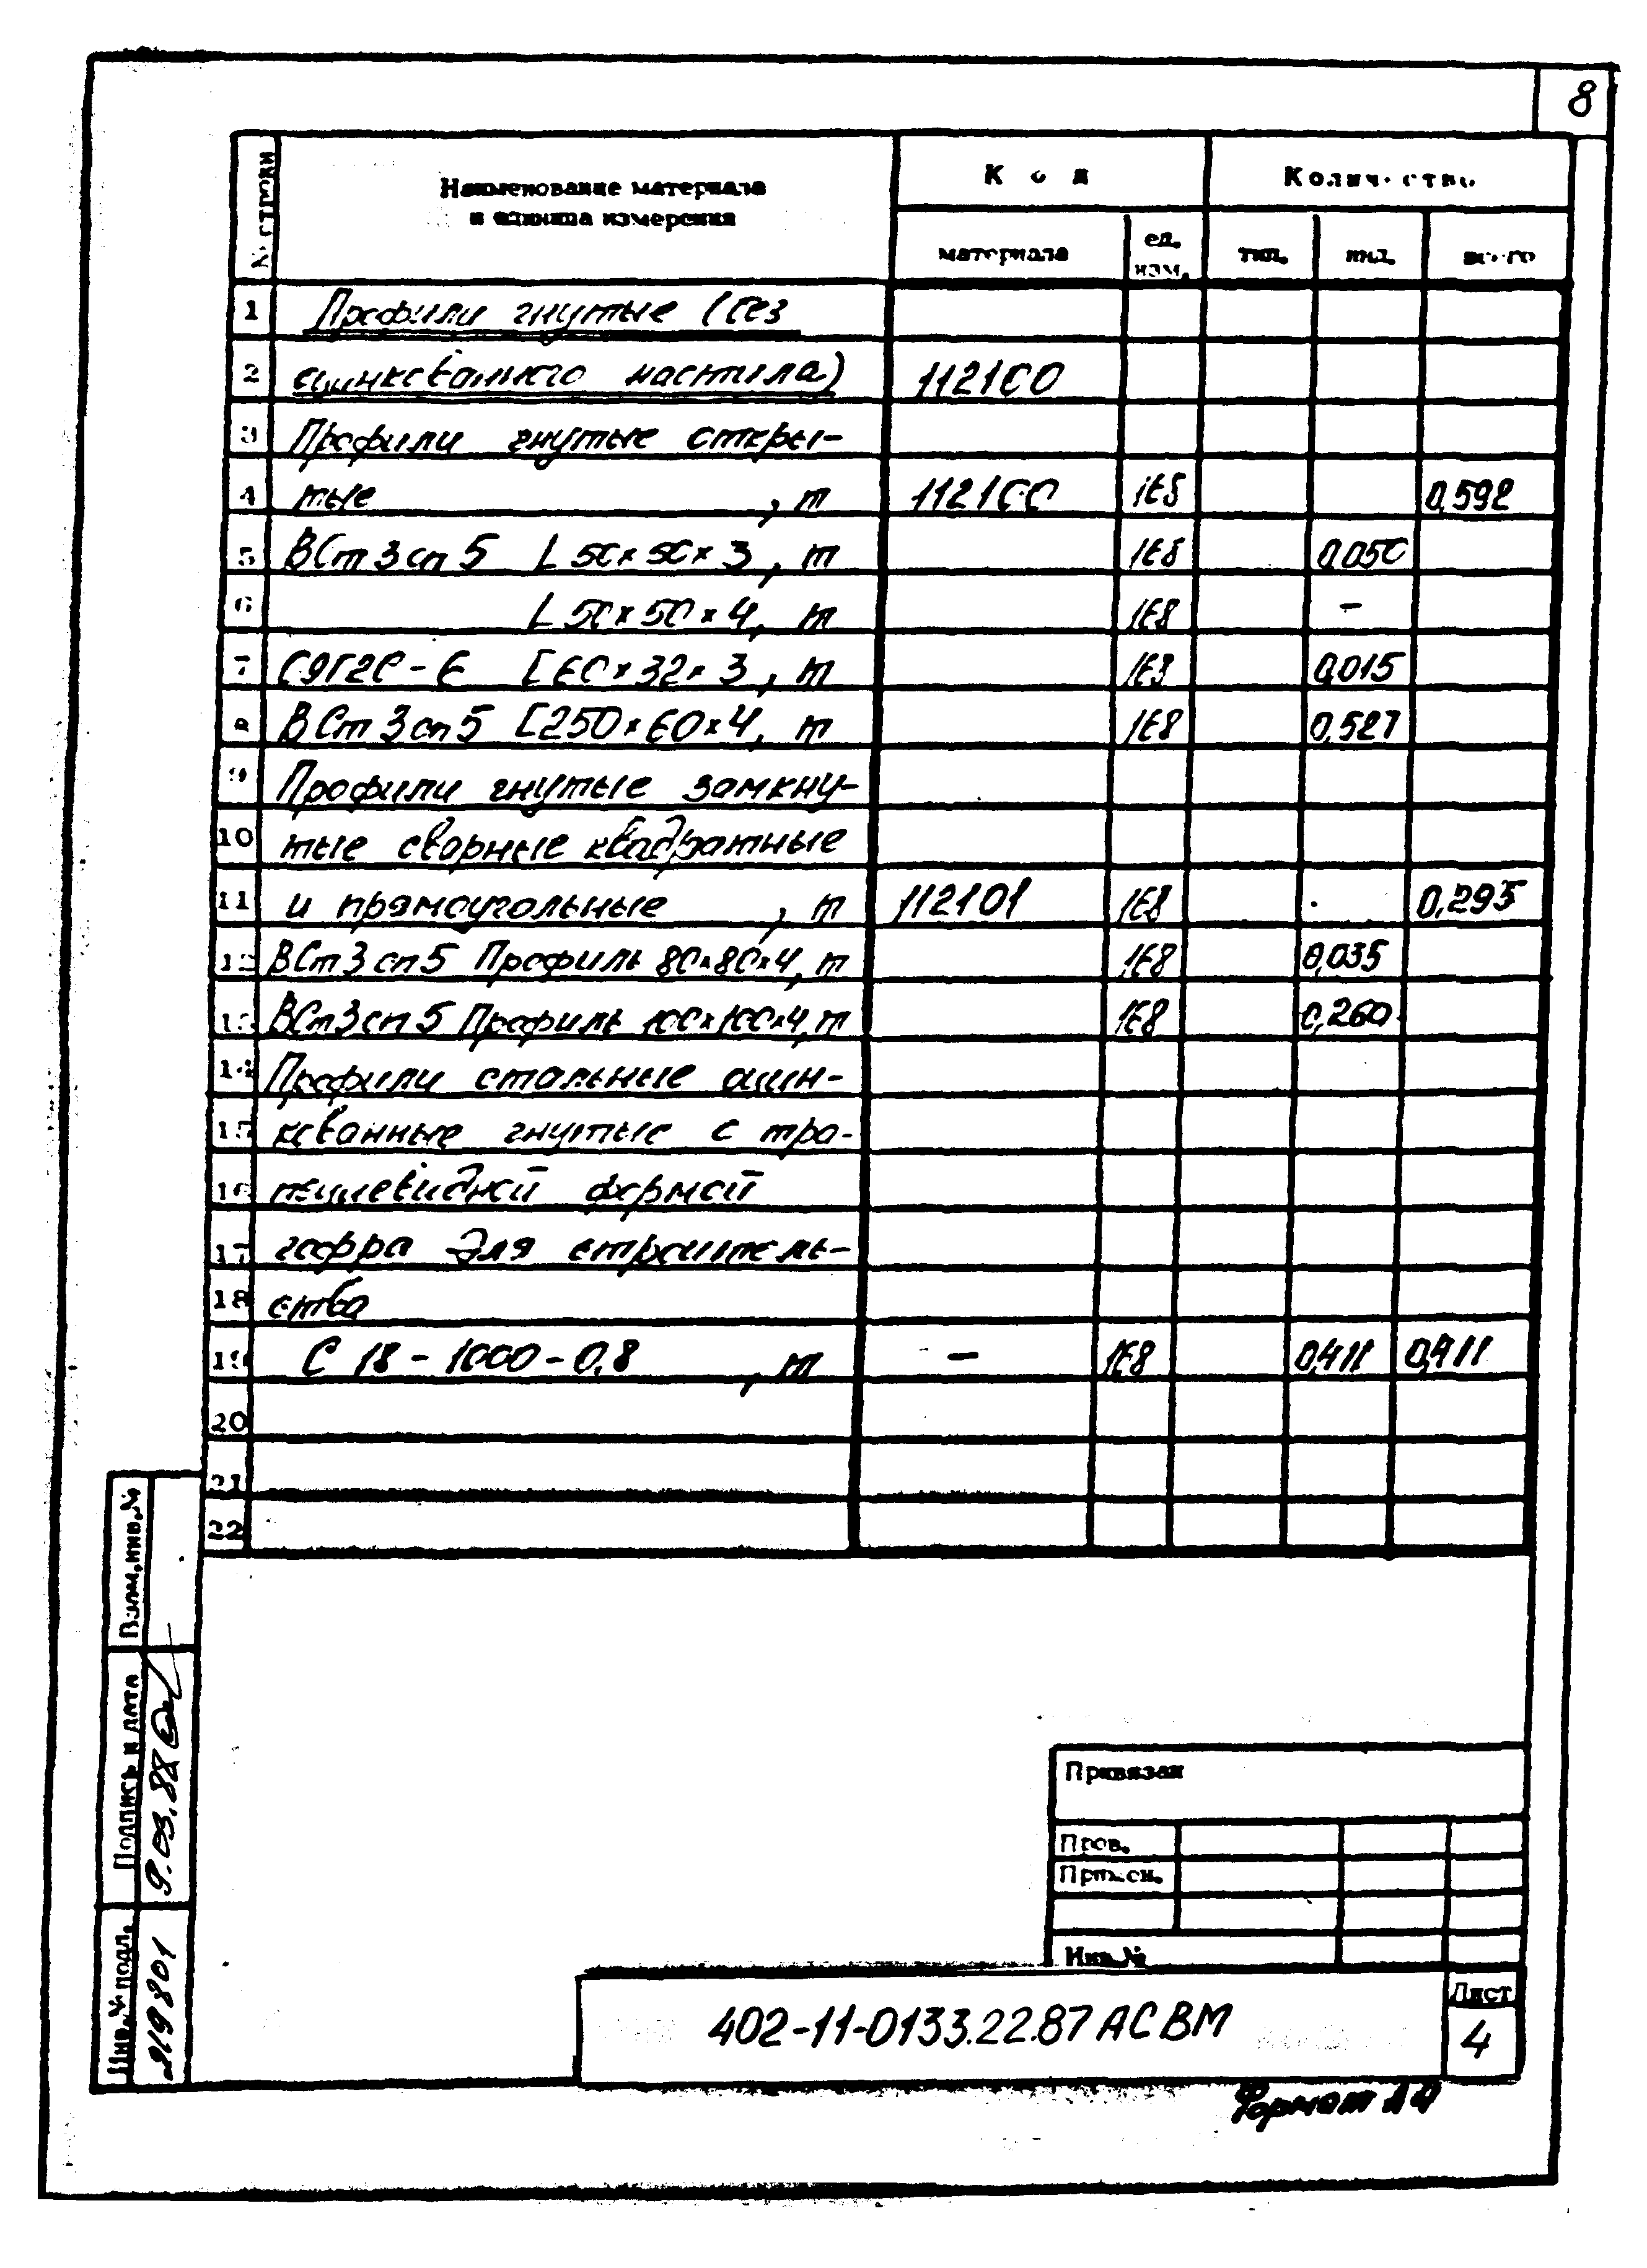 8
№ строки
Наименование материала
и единица измерения
Код
Количество
материала
ед.
изм.
тип.
инд.
всего
1 Профили гнутые (без
2 оцинкованного настила) 112100
3 Профили гнутые откры-
4 тые , т 112100 168 0,592
5 ВСт3сп5 L 50×50×3, т 168 0,050
6 L 50×50×4, т 168 –
7 С9Г2С-6 [ 60×32×3, т 168 0,015
8 ВСт3сп5 [250×60×4, т 168 0,527
9 Профили гнутые замкну-
10 тые сварные квадратные
11 и прямоугольные , т 112101 168 0,295
12 ВСт3сп5 Профиль 80×80×4, т 168 0,035
13 ВСт3сп5 Профиль 100×100×4, т 168 0,260
14 Профили стальные оцин-
15 кованные гнутые с тра-
16 пециевидной формой
17 гофра для строитель-
18 ства
19 С 18-1000-0,8 , т – 168 0,411 0,411
20
21
22
Взам. инв. №
Подпись и дата
9.03.88
Инв. № подл.
219801
Привязан
Пров.
Инв. №
402-11-0133.22.87 АС ВМ
Лист
4
Формат А4